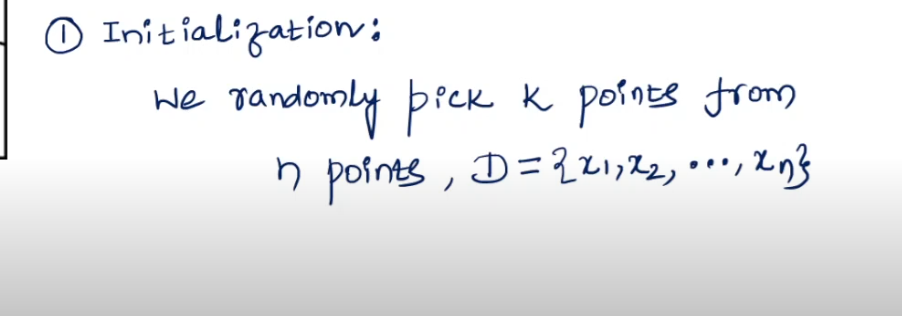 ① Initialization:
We randomly pick k points from
n points, D = {x₁, x₂, ..., xₙ}